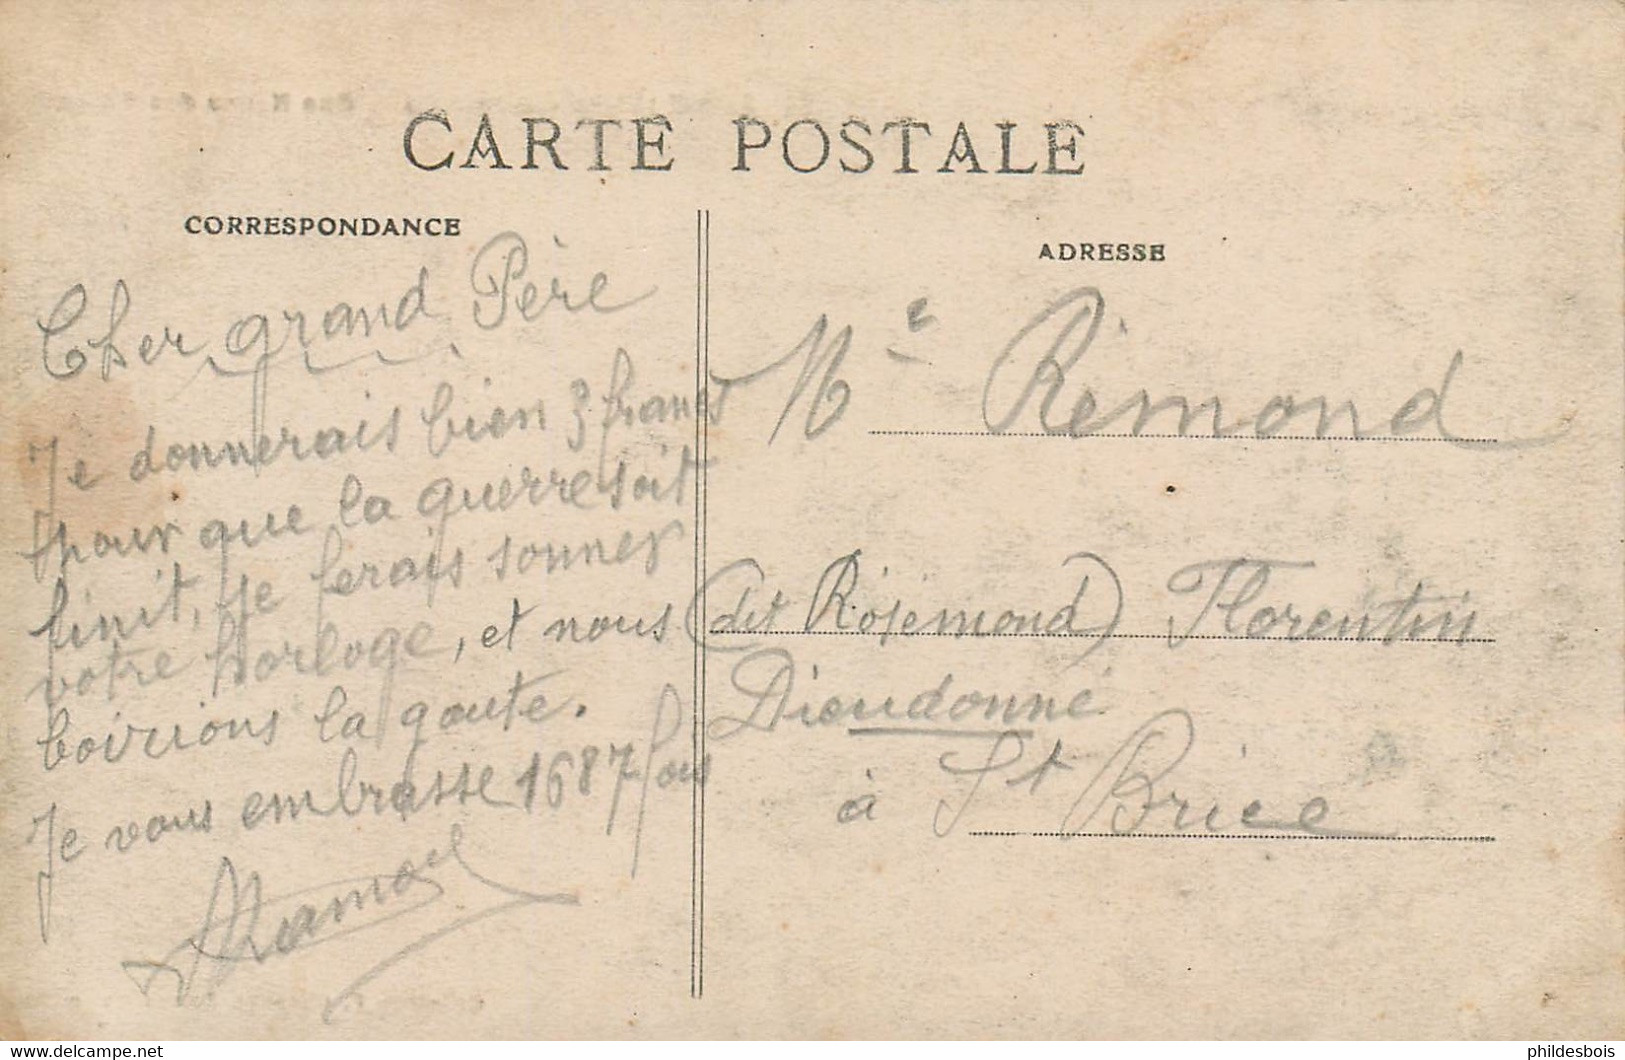 CARTE POSTALE
CORRESPONDANCE
Cher grand Père
Je donnerais bien 3 francs
pour que la guerre soit
finit, je ferais sonner
votre horloge, et nous
boirions la goute.
Je vous embrasse 1687 fois
ADRESSE
Mr Rémond
(dit Rosemond) Florentin
Dieudonné
à St Brice
phildesbois